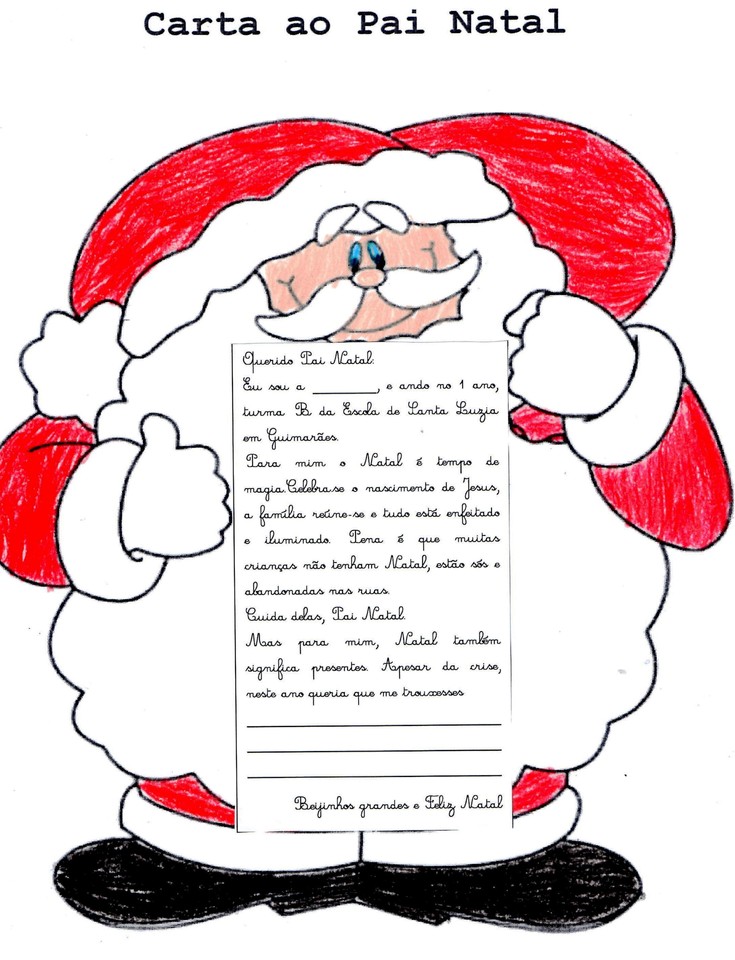 Carta ao Pai Natal
Querido Pai Natal:
Eu sou a __________, e ando no 1 ano,
turma B da Escola de Santa Luzia
em Guimarães.
Para mim o Natal é tempo de
magia.Celebra-se o nascimento de Jesus,
a família reúne-se e tudo está enfeitado
e iluminado. Pena é que muitas
crianças não tenham Natal, estão sós e
abandonadas nas ruas.
Cuida delas, Pai Natal.
Mas para mim, Natal também
significa presentes. Apesar da crise,
neste ano queria que me trouxesses
Beijinhos grandes e Feliz Natal